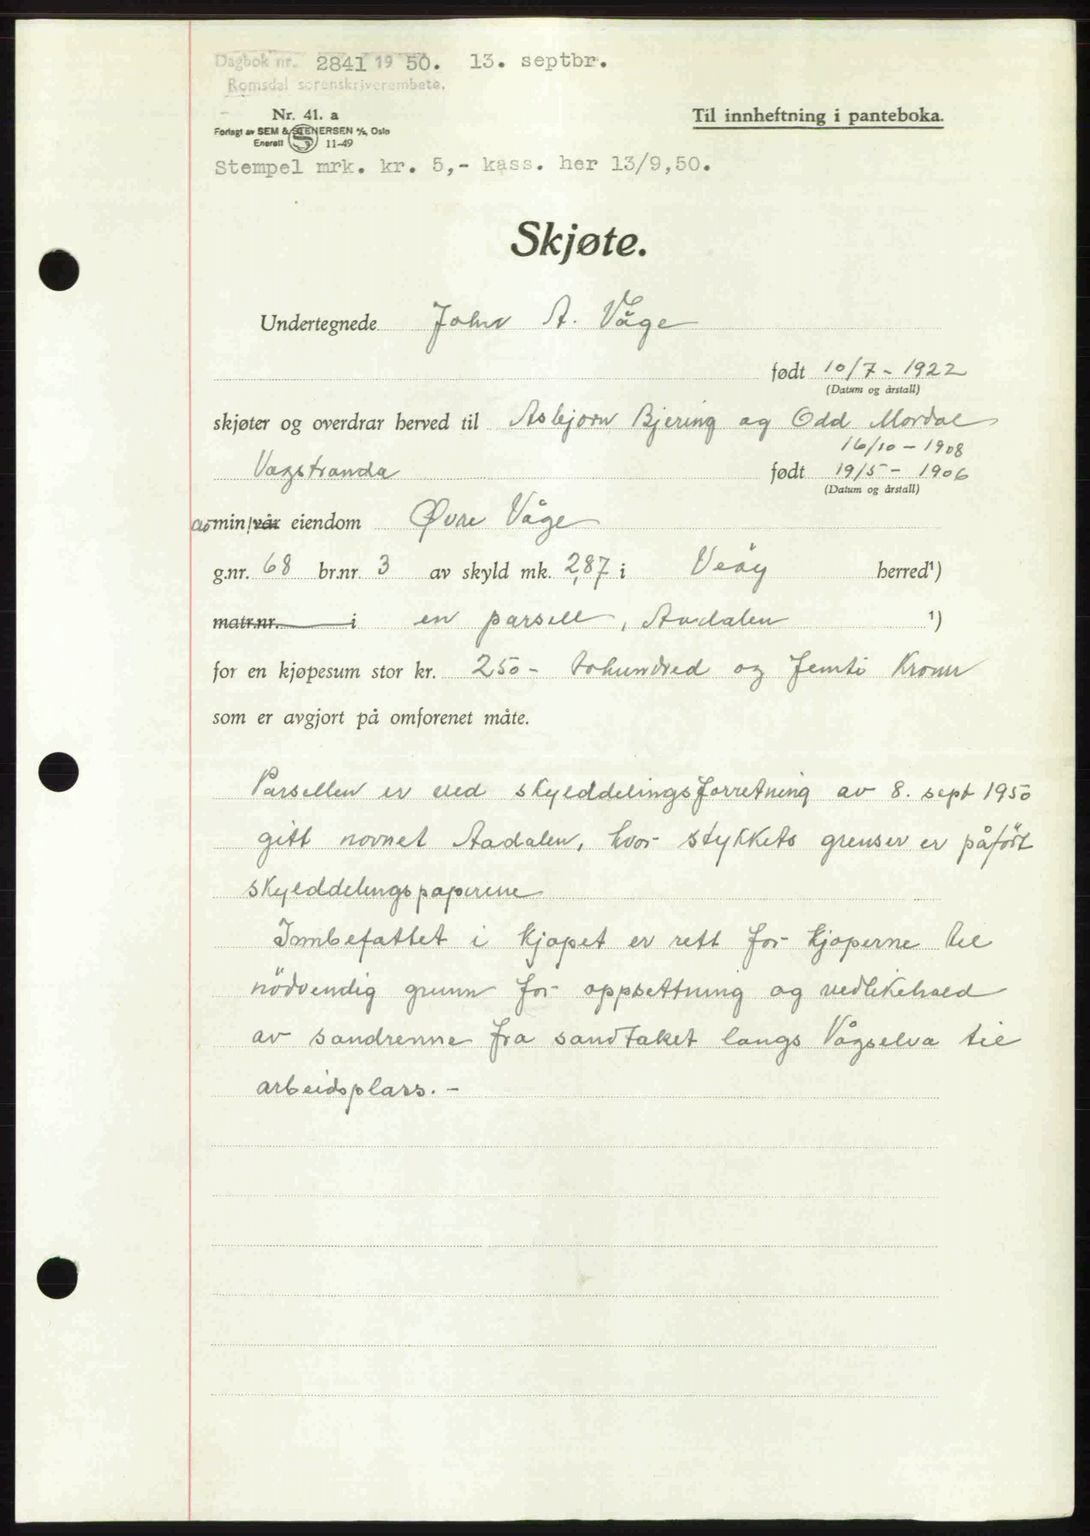 Dagbok nr. 2841 19 50. 13. septbr.
Romsdal sorenskriverembete.
Nr. 41. a
Til innheftning i panteboka.
Forlagt av SEM & STENERSEN A/S, Oslo
Enerett 11-49
Stempel mrk. kr. 5,- kass. her 13/9,50.
Skjøte.
Undertegnede John A. Våge
født 10/7 - 1922
(Datum og årstall)
skjøter og overdrar herved til Asbjørn Bjering og Odd Mordal
16/10 - 1908
Vågstranda født 19/5 - 1906
(Datum og årstall)
av min/vår eiendom Øvre Våge
g.nr. 68 br.nr. 3 av skyld mk. 2,87 i Veöy herred¹)
matr.nr. i en parsell, Aadalen ¹)
for en kjøpesum stor kr. 250 - tohundred og femti Kroner
som er avgjort på omforenet måte.
Parsellen er ved skylddelingsforretning av 8. sept 1950
gitt navnet Aadalen, hvor stykkets grenser er påfört
skylddelingspapirene
Innbefattet i kjøpet er rett for kjøperne til
nödvendig grunn for oppsettning og vedlikehold
av sandrenne fra sandtaket langs Vågselva til
arbeidsplass. -